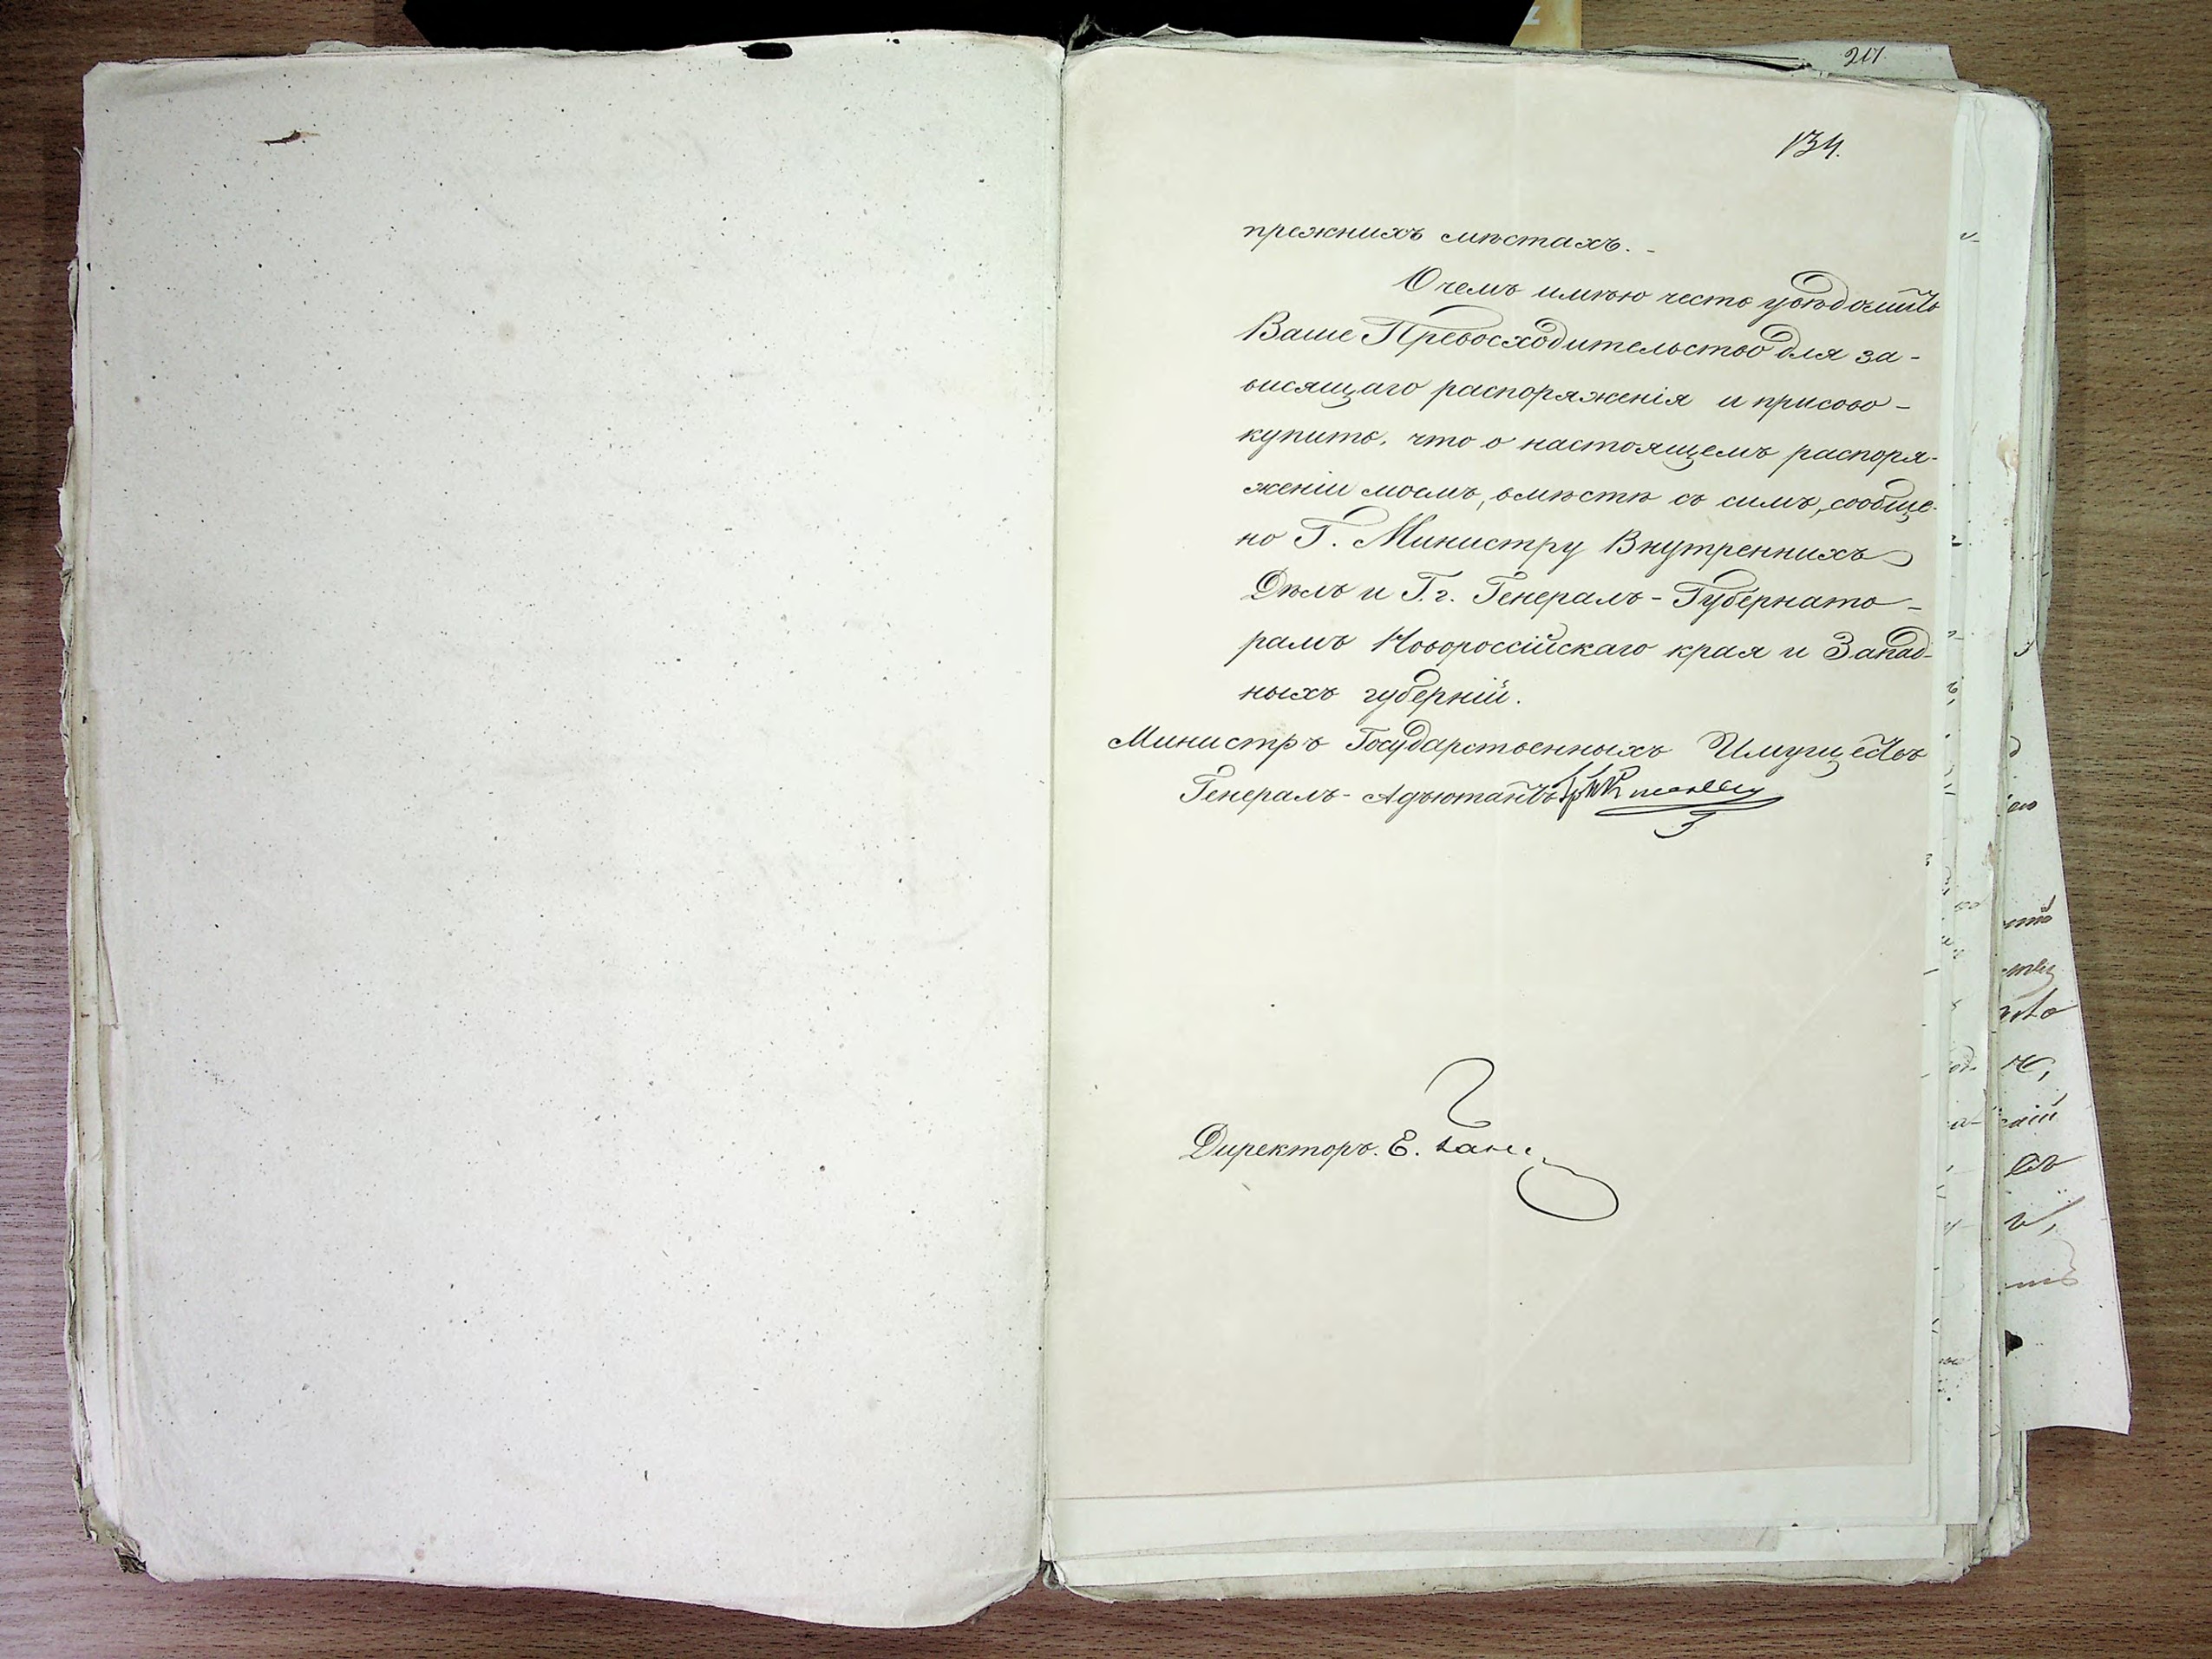 217
134.
прежнихъ мѣстахъ. -
О чемъ имѣю честь увѣдомить
Ваше Превосходительство для за-
висящаго распоряженія и присово-
купить, что о настоящемъ распоря-
женіи моемъ, вмѣстѣ съ симъ, сообще-
но Г. Министру Внутреннихъ
Дѣлъ и Г.г. Генералъ-Губернато-
рамъ Новороссійскаго края и Запад-
ныхъ губерній.
Министръ Государственныхъ Имуществъ
Генералъ-Адъютантъ
Директоръ. Е.